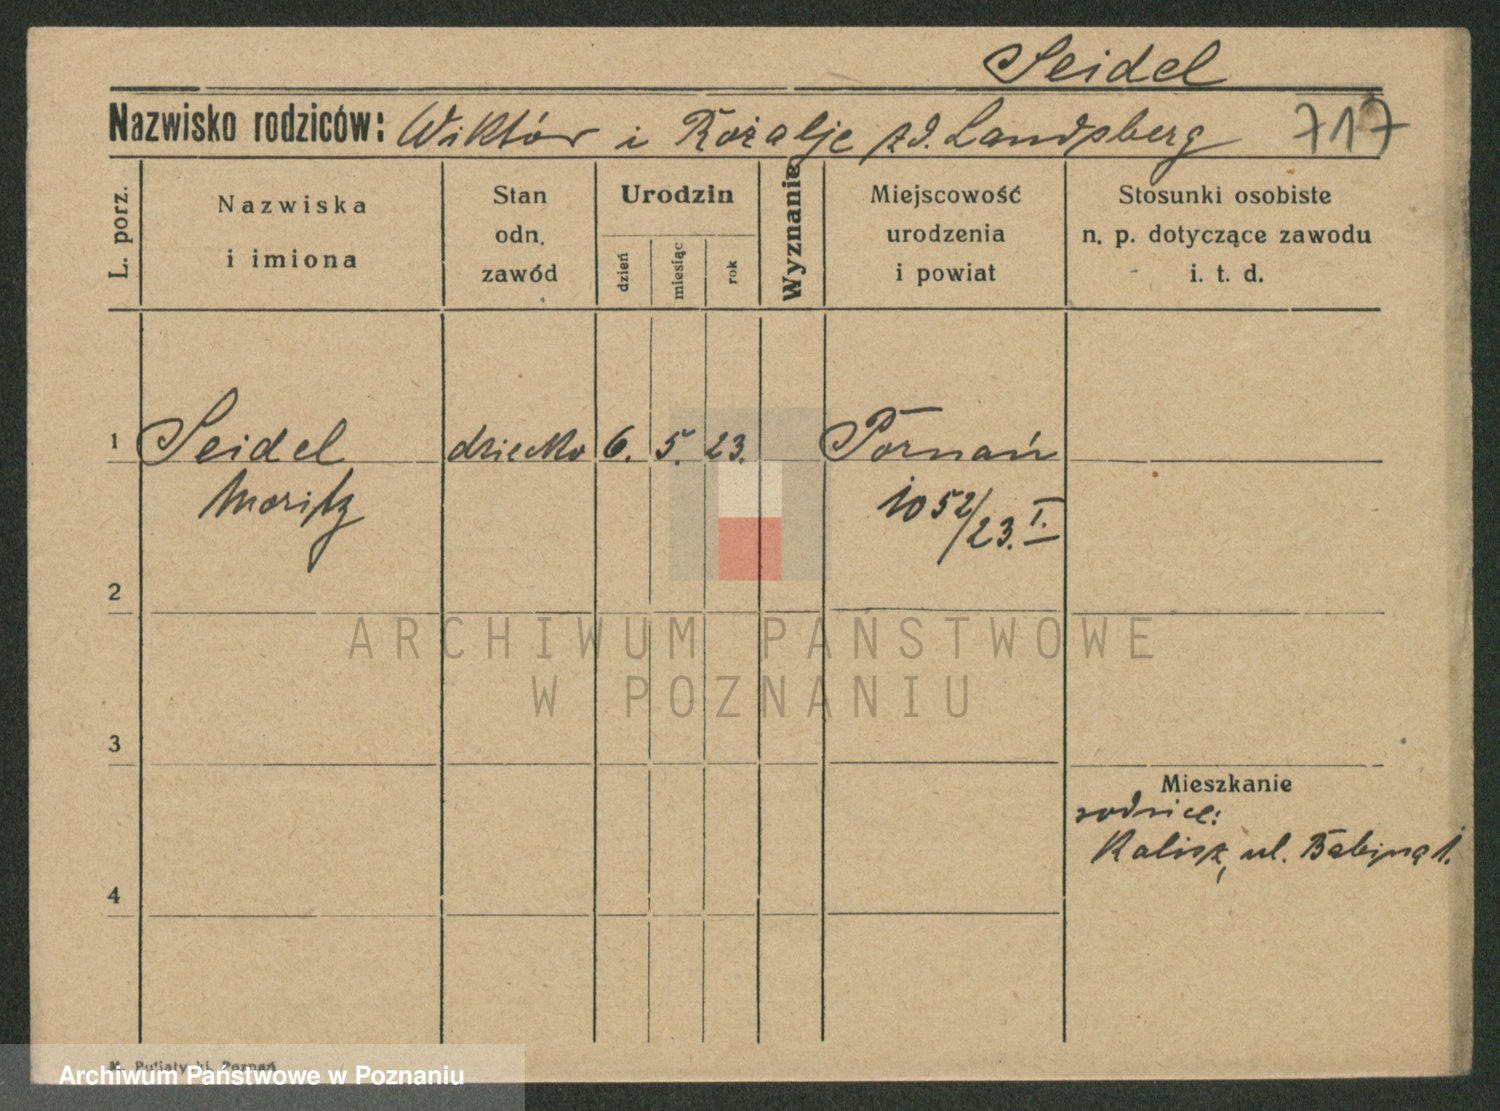 Seidel
Nazwisko rodziców: Wiktór i Rozalje zd. Landsberg 717
L. porz.
Nazwiska
i imiona
Stan
odn.
zawód
Urodzin
dzień
miesiąc
rok
Wyznanie
Miejscowość
urodzenia
i powiat
Stosunki osobiste
n. p. dotyczące zawodu
i. t. d.
1 Seidel dziecko 6. 5. 23. Poznań
Moritz 1052/23. I.
2
ARCHIWUM PAŃSTWOWE
W POZNANIU
3
Mieszkanie
rodzice:
Kalisz, ul. Babina 1.
4
Poznań
Archiwum Państwowe w Poznaniu